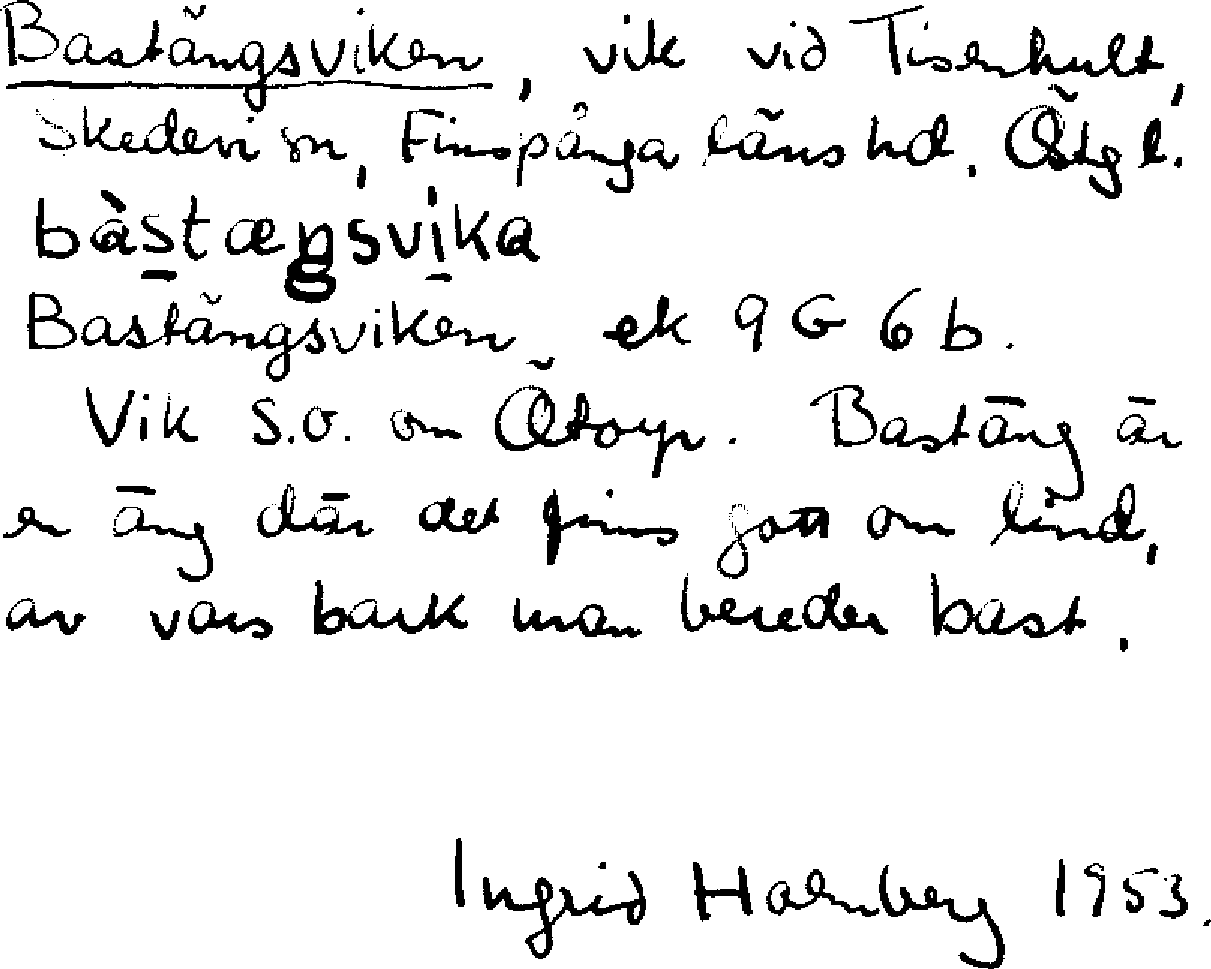 Bastängsviken, vik vid Tisenhult,
Skedevi sn, Finspånga läns hd, Östg l.
bàstæŋsvika
Bastängsviken ek 9 G 6 b.
Vik S.O. om Ötorp. Bastäng är
en äng där det finns gott om lind,
av vars bark man bereder bast.
Ingrid Holmberg 1953.